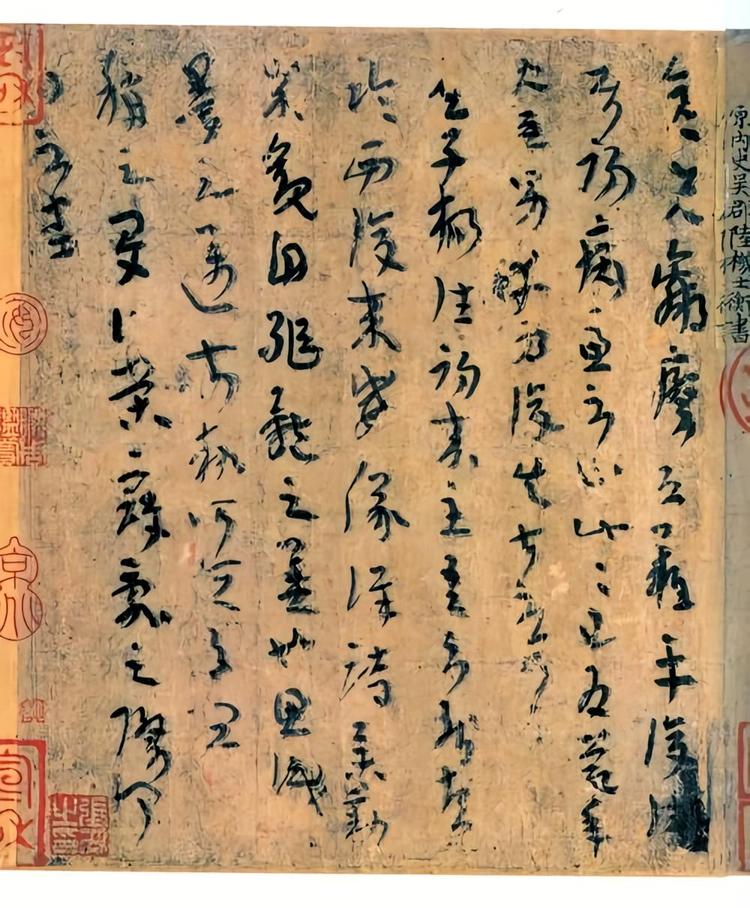 內史吳郡陸機士衡書
彥先羸瘵恐難平復往屬
初病慮不止此此已為慶承
使唯男幸為復失前憂耳
吳子楊往初來主吾不能盡
臨西復來威儀詳跱舉動
成觀自軀體之美也思識
量之邁前執所恒有宜
稱之夏伯榮寇亂之際聞
問不悉
張丑之印